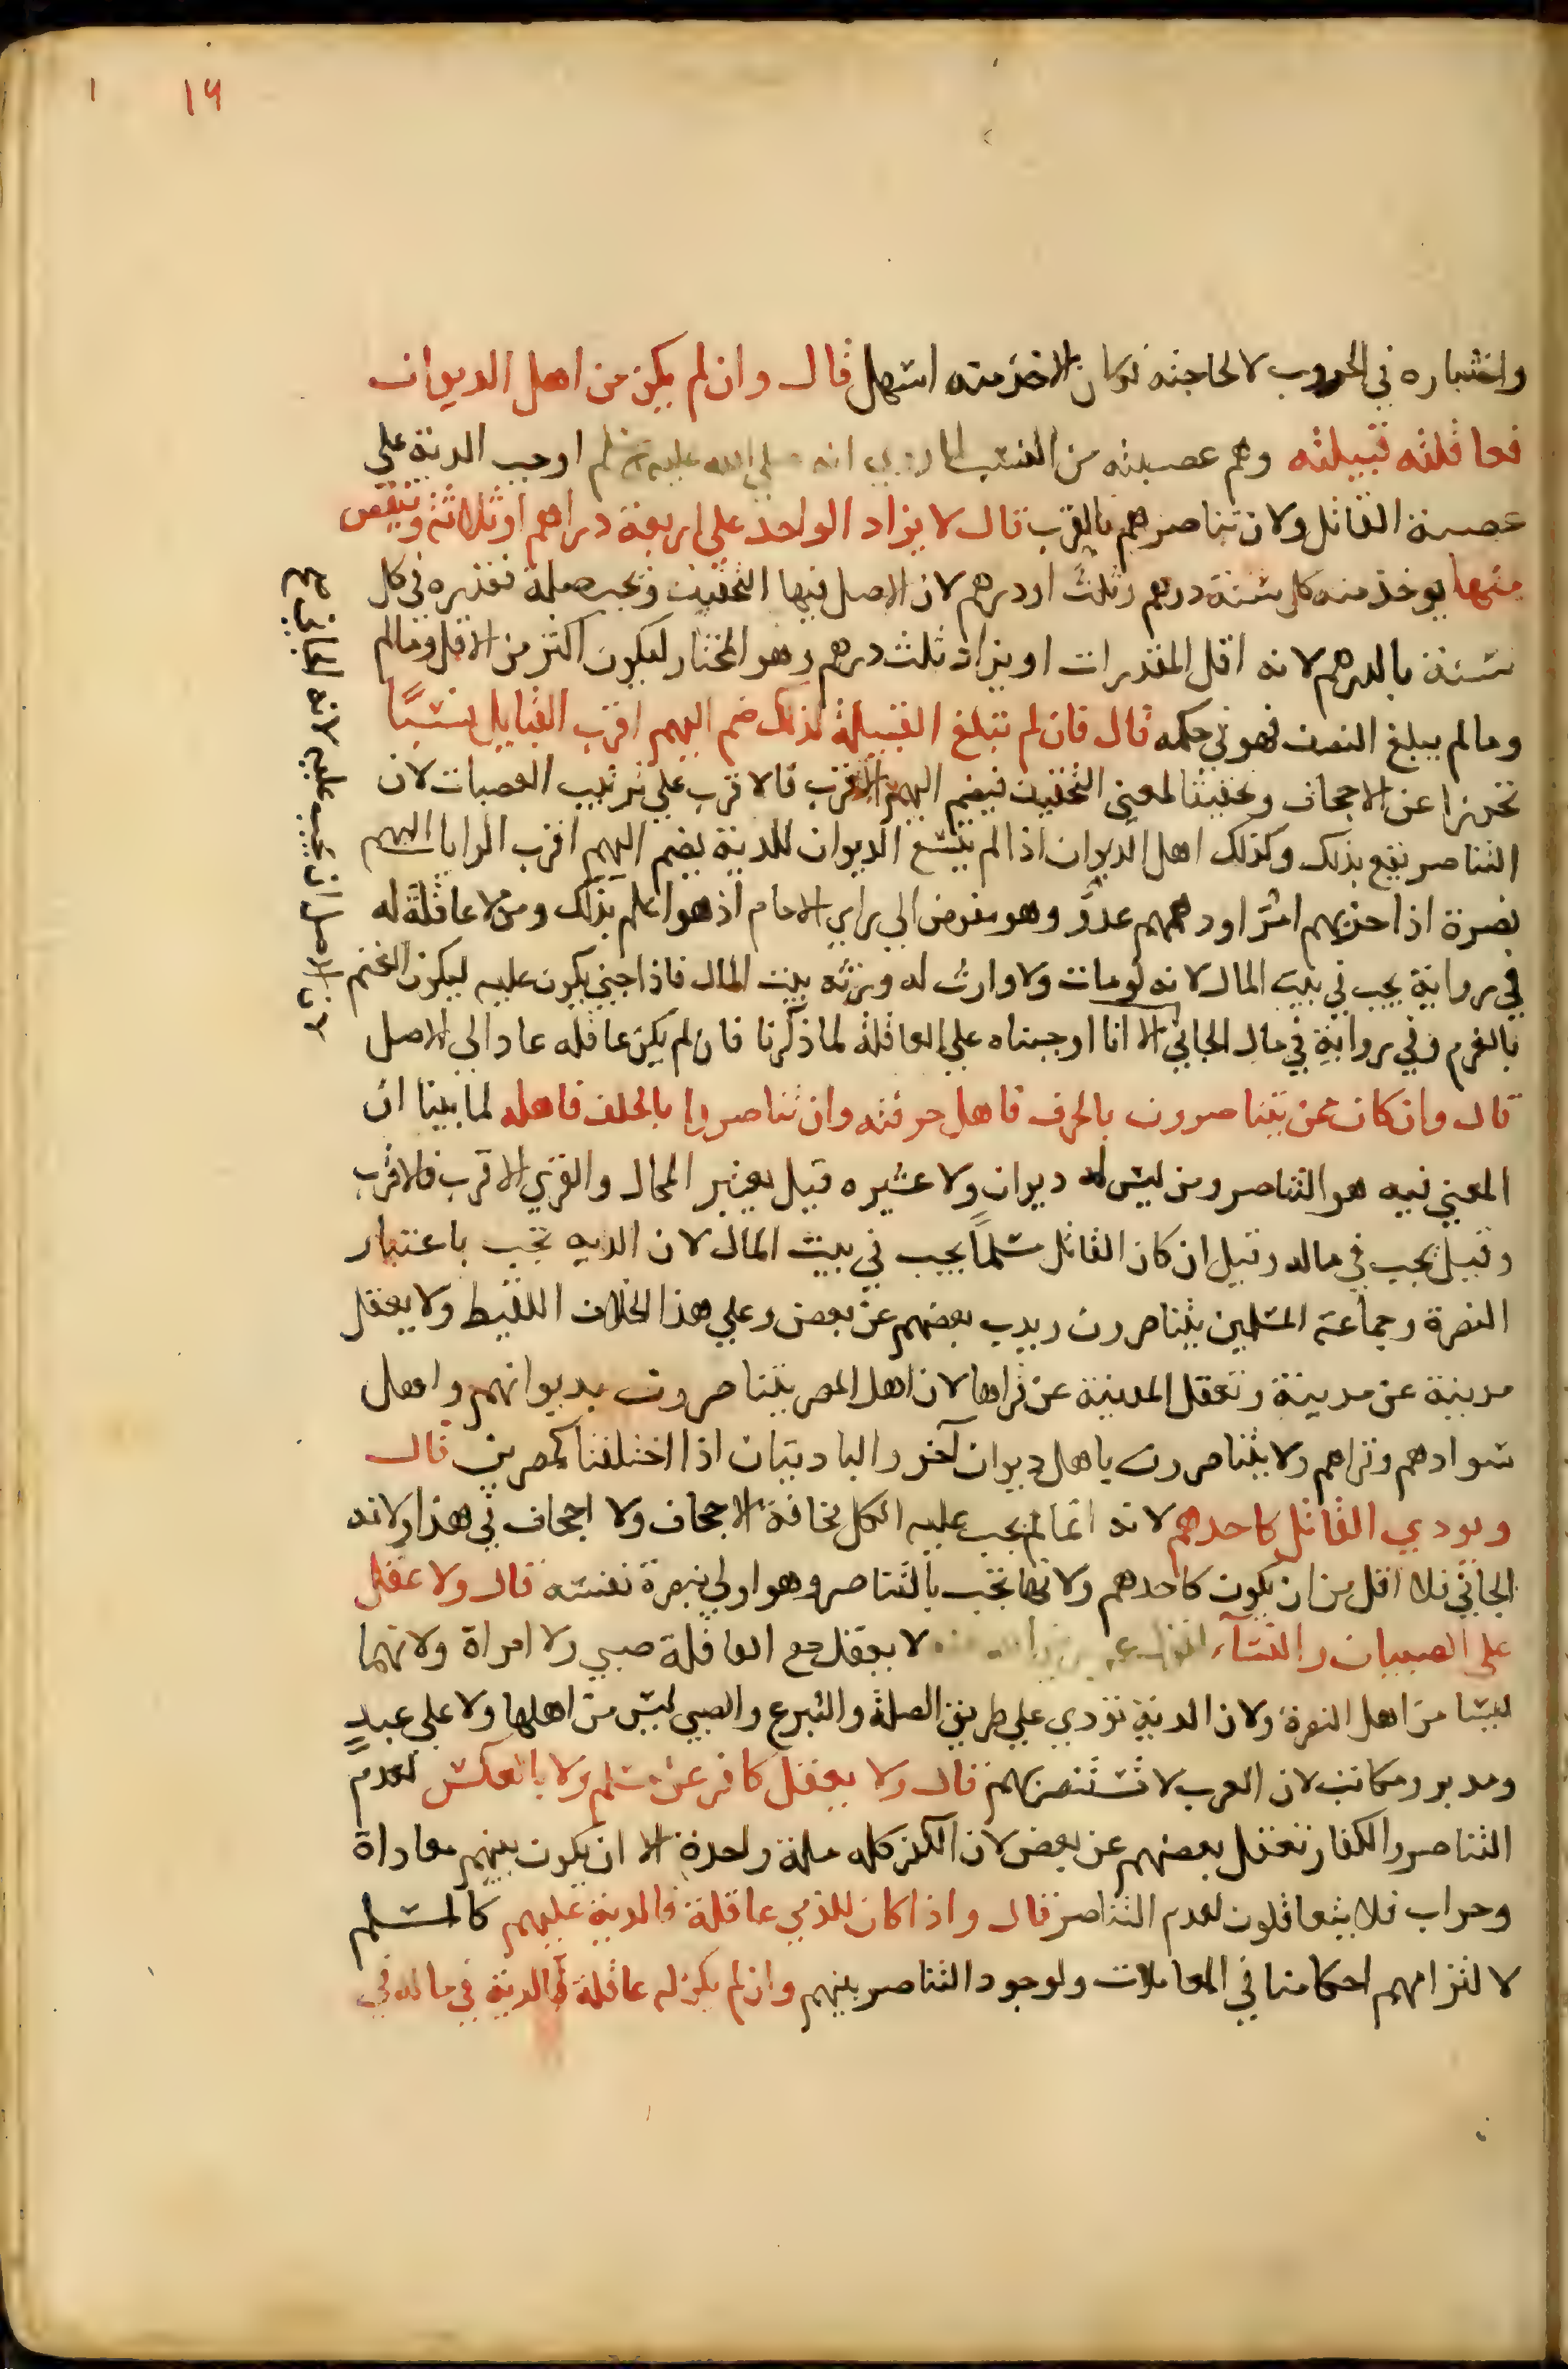 ١٩ ١
واختباره في الحروب لا لحاجته فكان الاخذ منه اسهل قال وان لم يكن من اهل الديوان
فعاقلته قبيلته وهم عصبته من النسب لما روي انه صلى الله عليه وسلم اوجب الدية على
عصبة القاتل ولان تناصرهم بالقرب قال لا يزاد الواحد على اربعة دراهم او ثلاثة وينقص
منها يوخذ منه كل سنة درهم وثلث او درهم لان الاصل فيها التخفيف وتجب صلة فقدره في كل
سنة بالدرهم لانه اقل المقدرات او يزاد ثلث درهم وهو المختار ليكون اكثر من الاقل وما لم
وما لم يبلغ النصف فهو في حكمه قال فان لم تبلغ القبيلة لذلك ضم اليهم اقرب القبايل نسبًا
تحرزا عن الاجحاف وتحقيقا لمعنى التخفيف فيضم اليهم الاقرب فالاقرب على ترتيب العصبات لان
التناصر يقع بذلك وكذلك اهل الديوان اذا لم يتسع الديوان للدية يضم اليهم اقرب الرايات اليهم
نصرة اذا حزبهم امر او دهمهم عدو وهو مفوض الى راي الامام اذ هو اعلم بذلك ومن لا عاقلة له
في رواية يجب في بيت المال لانه لو مات ولا وارث له ورثه بيت المال فاذا جنى يكون عليه ليكون الغنم
بالغرم وفي رواية في مال الجاني الا انا اوجبناه على العاقلة لما ذكرنا فان لم يكن عاقله عاد الى الاصل
قال وان كان ممن يتناصرون بالحرف فاهل حرفته وان تناصروا بالحلف فاهله لما بينا ان
المعنى فيه هو التناصر ومن ليس له ديوان ولا عشيره قيل يعتبر المحال والقرى الاقرب فالاقرب
وقيل يجب في ماله وقيل ان كان القاتل مسلمًا يجب في بيت المال لان الديه تجب باعتبار
النصرة وجماعة المسلمين يتناصرون ويذب بعضهم عن بعض وعلى هذا الخلاف اللقيط ولا يعقل
مدينة عن مدينة وتعقل المدينة عن قراها لان اهل المصر يتناصرون بديوانهم واهل
سوادهم وقراهم ولا يتناصرون باهل ديوان آخر والباديتان اذا اختلفتا كمصرين قال
ويودي القاتل كاحدهم لانه انما لم يجب عليه الكل مخافة الاجحاف ولا اجحاف في هذا ولانه
الجاني فلا اقل من ان يكون كاحدهم ولانها تجب بالتناصر وهو اولى بنصرة نفسه قال ولا عقل
على الصبيان والنسآء لقول عمر رضي الله عنه لا يعقل مع العاقلة صبي ولا امراة ولانهما
ليسا من اهل النصرة ولان الدية تودي على طريق الصلة والتبرع والصبي ليس من اهلها ولا على عبدٍ
ومدبر ومكاتب لان العرب لا تستنصر بهم قال ولا يعقل كافر عن مسلم ولا بالعكس لعدم
التناصر والكفار تعقل بعضهم عن بعض لان الكفر كله ملة واحدة الا ان يكون بينهم معاداة
وحراب فلا يتعاقلون لعدم التناصر قال واذا كان للذمي عاقلة فالدية عليهم كالمسلم
لالتزامهم احكامنا في المعاملات ولوجود التناصر بينهم وان لم يكن له عاقلة فالدية في ماله في
لان الاصل ان تجب عليه لانه الجاني صح